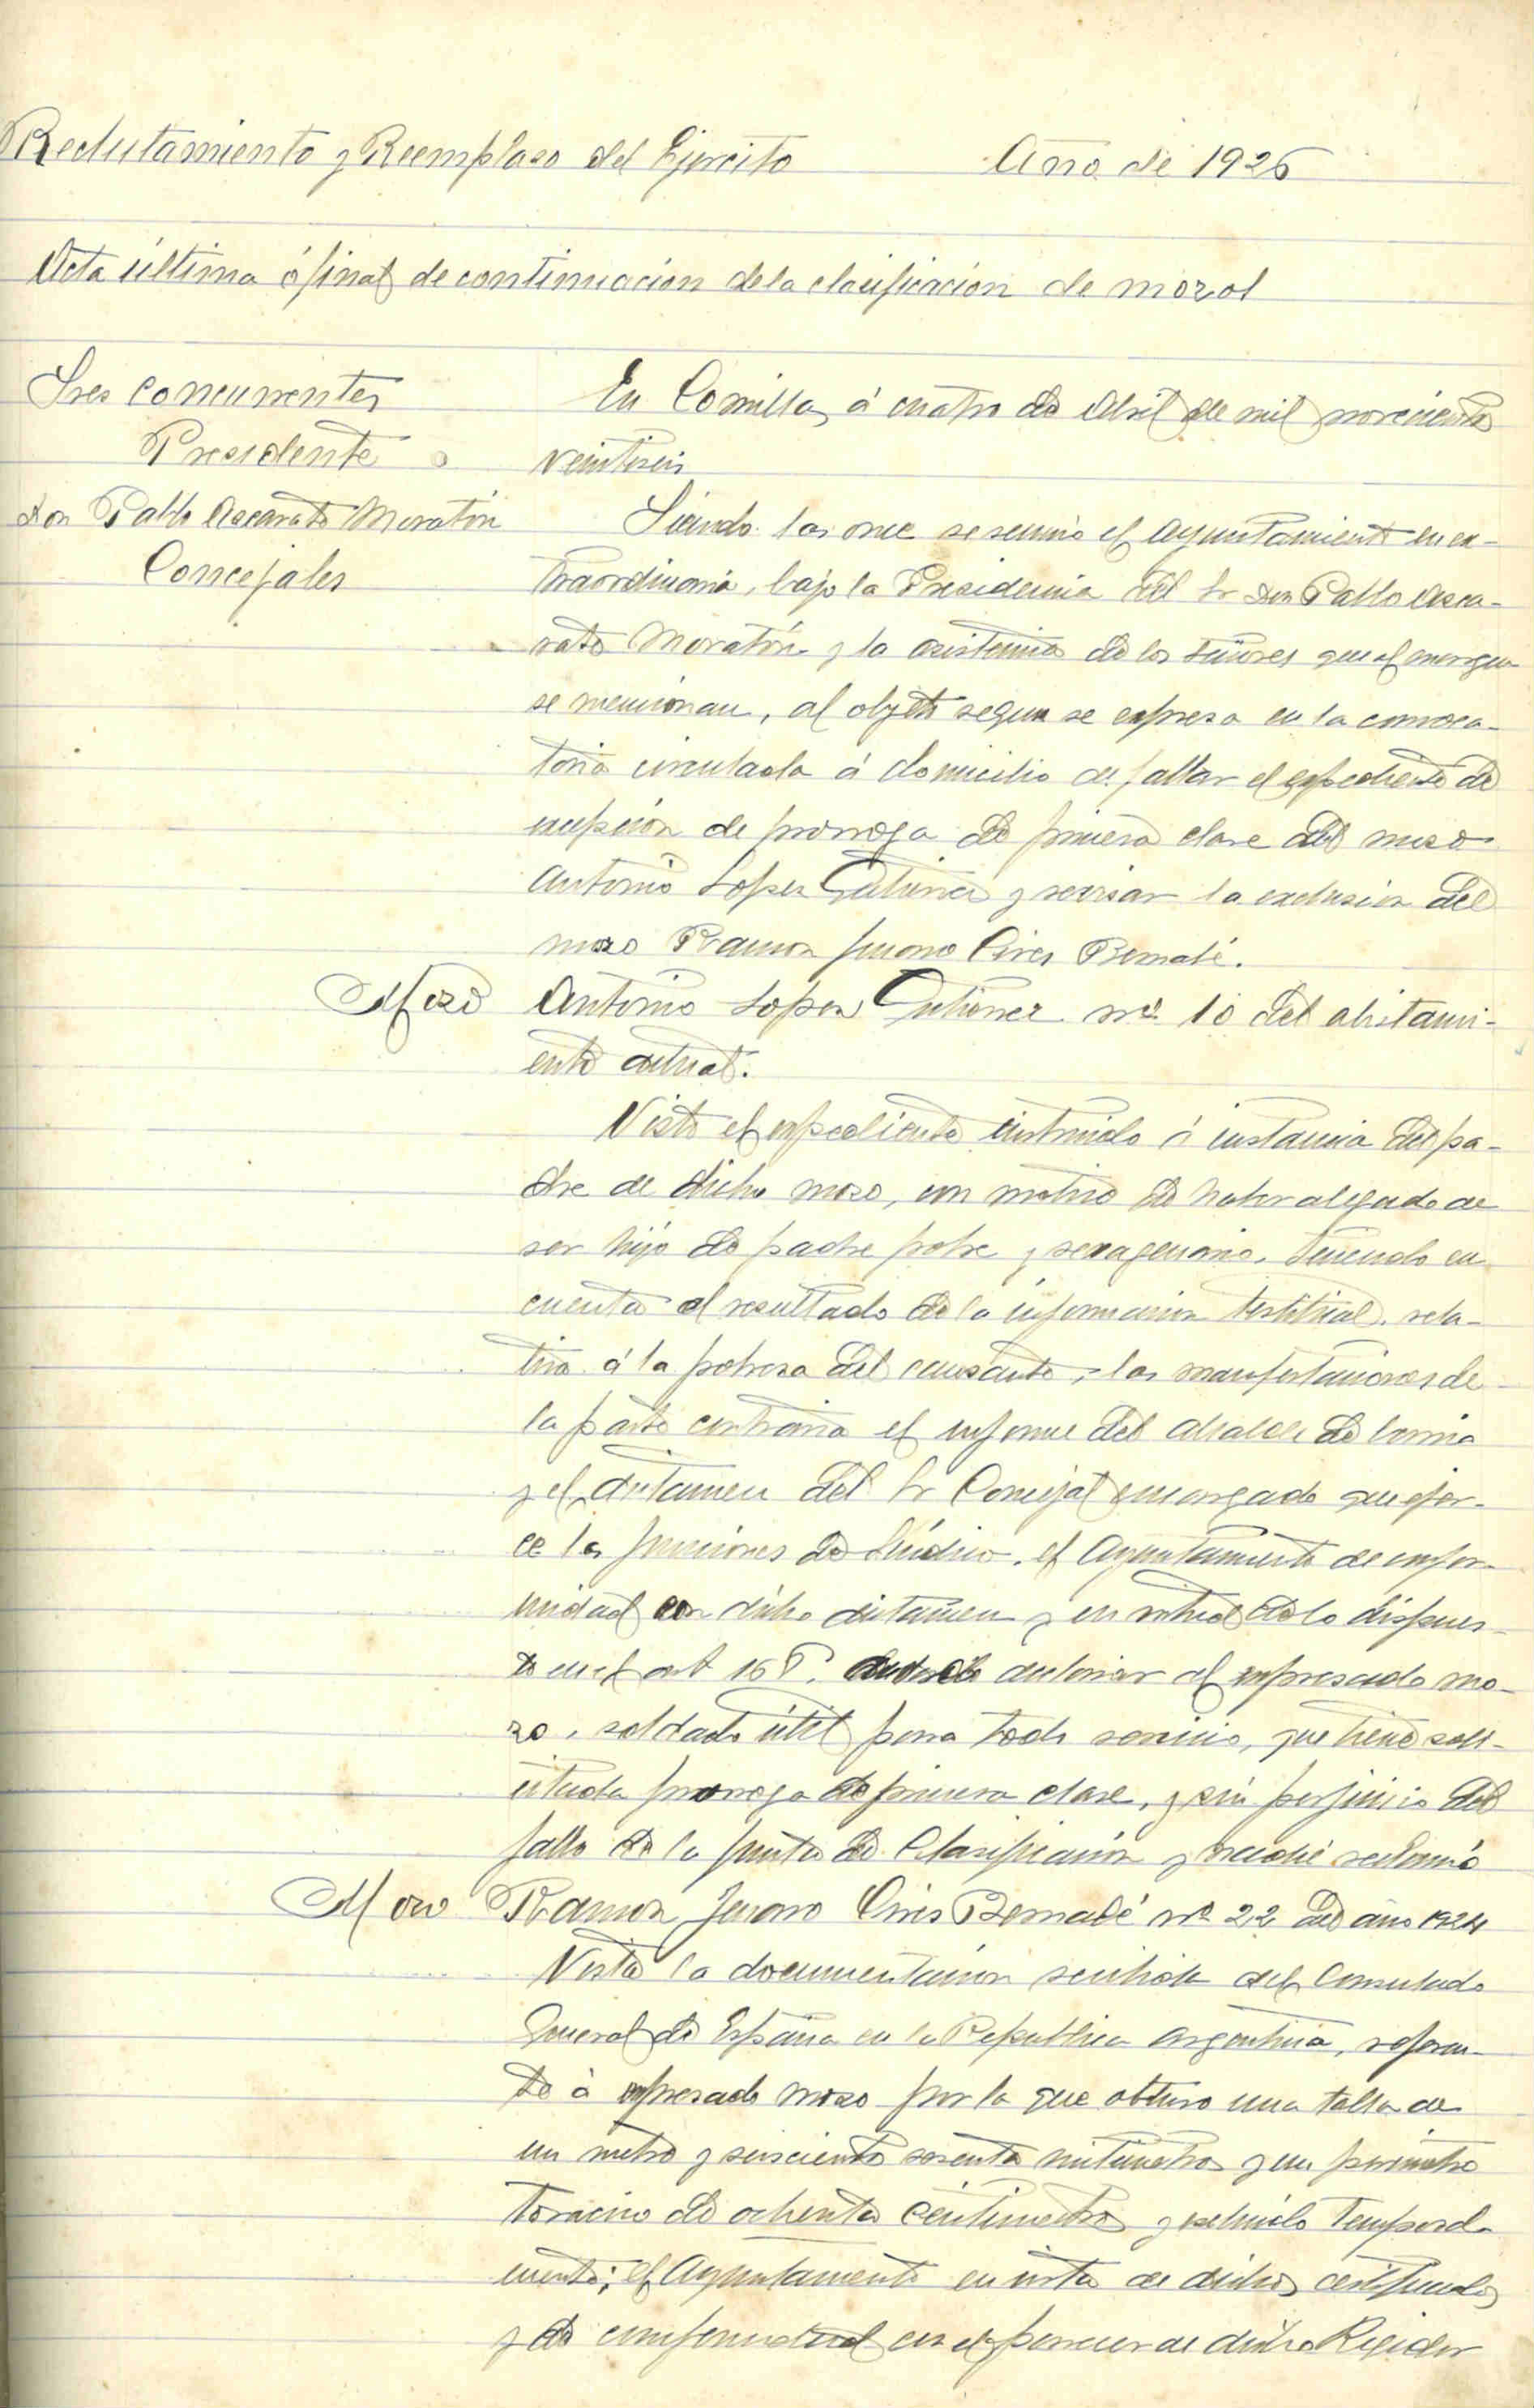 Reclutamiento y Reemplazo del Ejército Año de 1926
Acta última ó final de continuación de la clasificación de mozos
Sres Concurrentes
Presidente
Don Pablo Ascarate Moratin
Concejales
En Comillas á cuatro de Abril de mil novecientos
veintiseis
Siendo las once se reunió el Ayuntamiento en ex-
traordinaria, bajo la Presidencia del Sr Don Pablo Asca-
rate Moratin y la asistencia de los señores que al margen
se mencionan, al objeto segun se expresa en la convoca-
toria circulada á domicilio de fallar el expediente de
excepción de prorroga de primera clase del mozo
Antonio Lopez Gutierrez y revisar la exclusion del
mozo Ramon Jenaro Cires Bernabé.
Mozo Antonio Lopez Gutierrez nº 10 del alistami-
ento actual.
Visto el expediente instruido á instancia del pa-
dre de dicho mozo, con motivo de haber alegado de
ser hijo de padre pobre y sexagenario. Teniendo en
cuenta el resultado de la informacion testifical, rela-
tiva á la pobreza del causante, las manifestaciones de
la parte contraria el informe del Alcalde de barrio
y el dictamen del Sr Concejal encargado que ejer-
ce las funciones de Síndico, el Ayuntamiento de confor-
midad con dicho dictamen y en virtud de lo dispues-
to en el art al expresado mo-
zo, soldado útil para todo servicio, que tiene soli-
citada prorroga de primera clase, y sin perjuicio del
fallo de la Junta de Clasificación y
Mozo Ramon Jenaro Cires Bernabé nº 22 del año 1924
Vista la documentacion recibida del Consulado
General de España en la Republica Argentina, referen-
te á expresado mozo por la que obtuvo una talla de
un metro y seiscientos sesenta milimetros y un perimetro
toracico de ochenta centimetros y excluido temporal-
mente; el Ayuntamiento en vista de dichos certificados
y de conformidad con el parecer de dicho Regidor